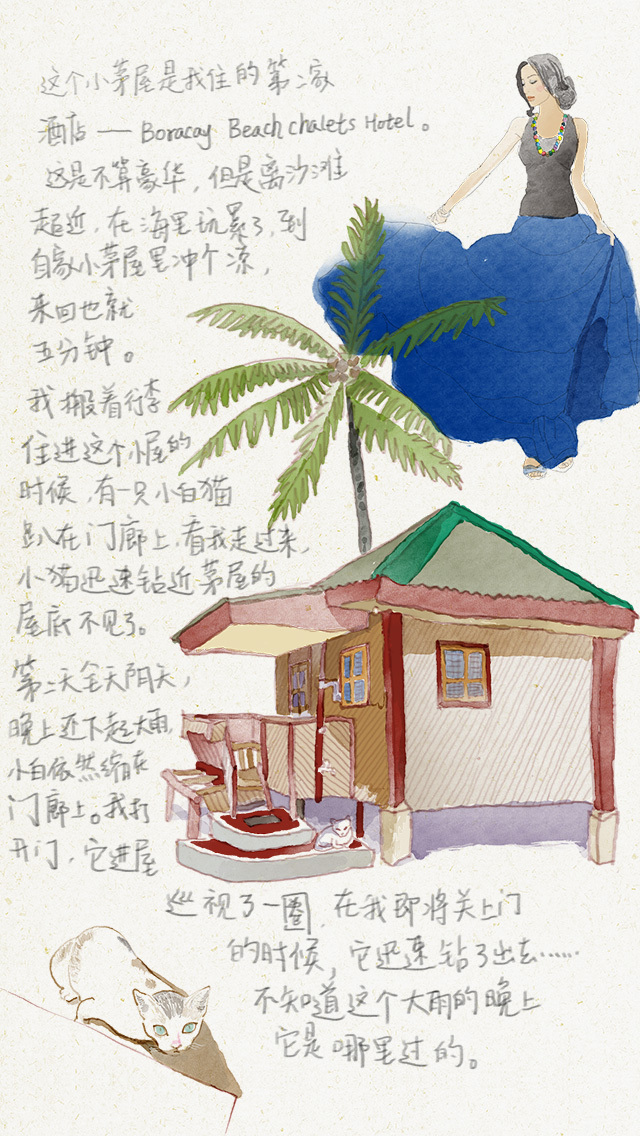 这个小茅屋是我住的第二家
酒店 — Boracay Beach chalets Hotel。
这是不算豪华，但是离沙滩
超近，在海里玩累了，到
自家小茅屋里冲个凉，
来回也就
五分钟。
我搬着行李
住进这个小屋的
时候，有一只小白猫
趴在门廊上，看我走过来，
小猫迅速钻近茅屋的
屋底不见了。
第二天全天阴天，
晚上还下起大雨，
小白依然缩在
门廊上。我打
开门，它进屋
巡视了一圈，在我即将关上门
的时候，它迅速钻了出去……
不知道这个大雨的晚上
它是哪里过的。